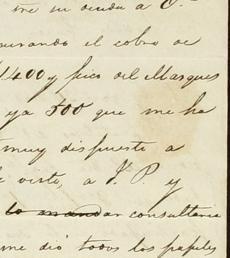 me su deuda a C.
urando el cobro de
1400 y pico del Marques
ya 500 que me ha
muy dispuesto a
visto, a V. P. y
lo mandar consultaria
me dió todos los papeles